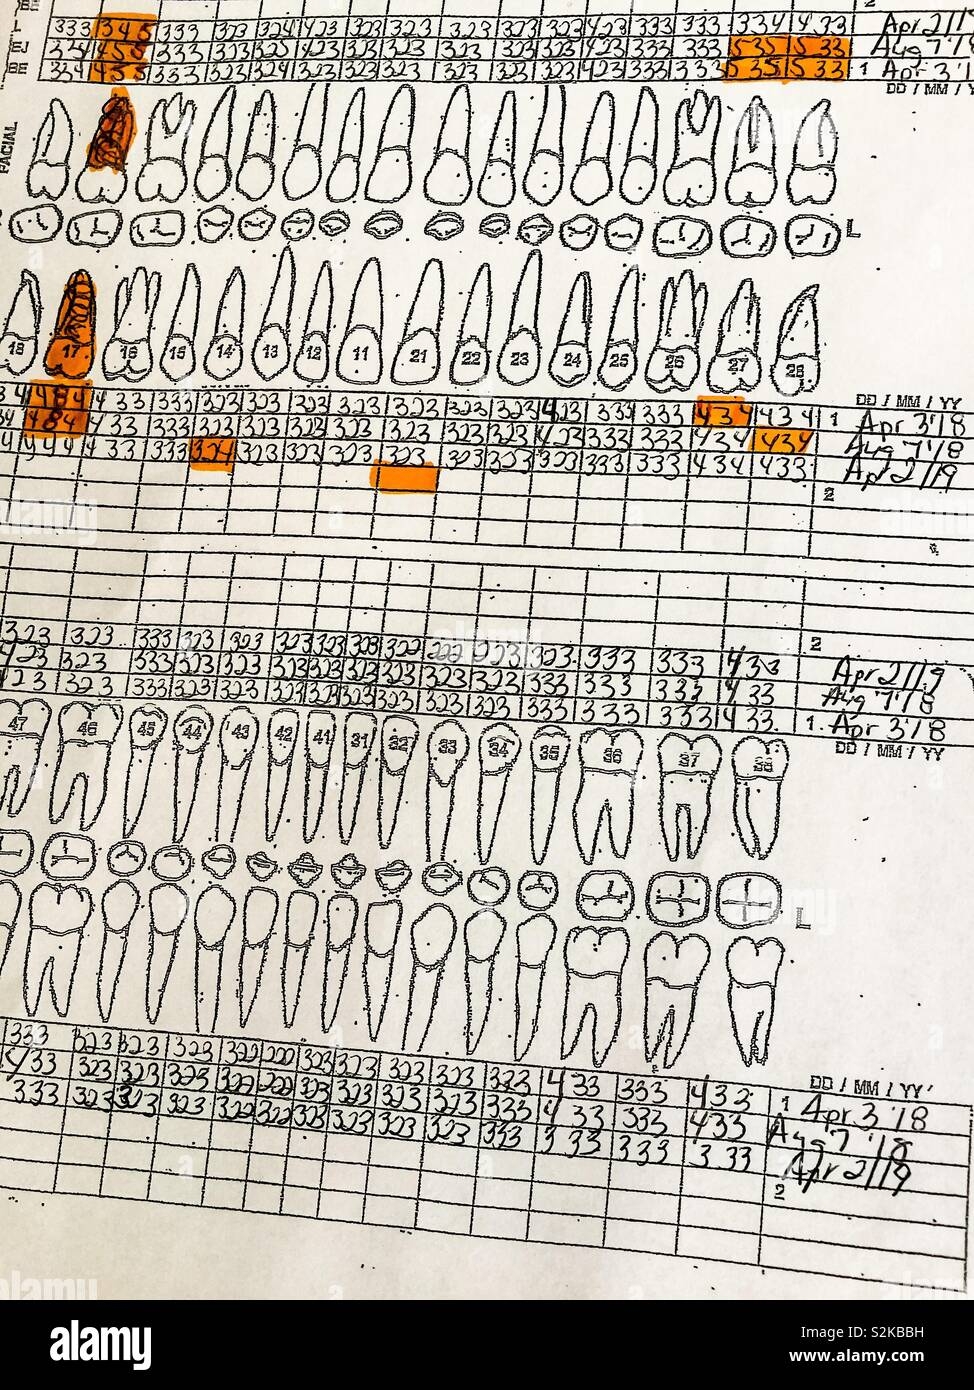 BE 2
L 333 345 333 333 323 324 423 323 323 323 333 323 423 333 333 334 433 Apr 2/19
EJ 334 455 333 323 325 423 323 323 323 323 323 423 333 333 535 533 Aug 7'18
BE 334 455 333 323 324 323 323 323 323 323 323 423 333 333 535 533 1 Apr 3'1
DD / MM / Y
FACIAL
L
18 17 16 15 14 13 12 11 21 22 23 24 25 26 27 28
DD / MM / YY
34 484 433 333 323 323 323 323 323 323 323 423 334 333 434 434 1 Apr 3'18
34 484 433 333 323 323 323 323 323 323 323 423 333 333 434 434 Aug 7'18
4 444 433 333 324 323 323 323 323 323 323 323 333 333 434 433 Apr 2/19
2
323 323 333 323 323 323 323 323 322 222 223 323 333 333 433 2
423 323 333 323 323 323 323 323 323 323 323 333 333 333 433 Apr 2/19
423 323 333 323 323 323 323 323 323 323 323 333 333 333 433 Aug 7'18
1 Apr 3'18
47 46 45 44 43 42 41 31 32 33 34 35 36 37 38
DD / MM / YY
L
DD / MM / YY
333 323 323 323 322 222 323 323 323 323 323 433 333 433 1 Apr 3'18
433 323 323 323 322 222 323 323 323 323 333 433 333 433 Aug 7'18
333 323 323 323 322 322 323 323 323 323 333 333 333 333 Apr 2/19
2
alamy
Image ID: S2KBBH
www.alamy.com